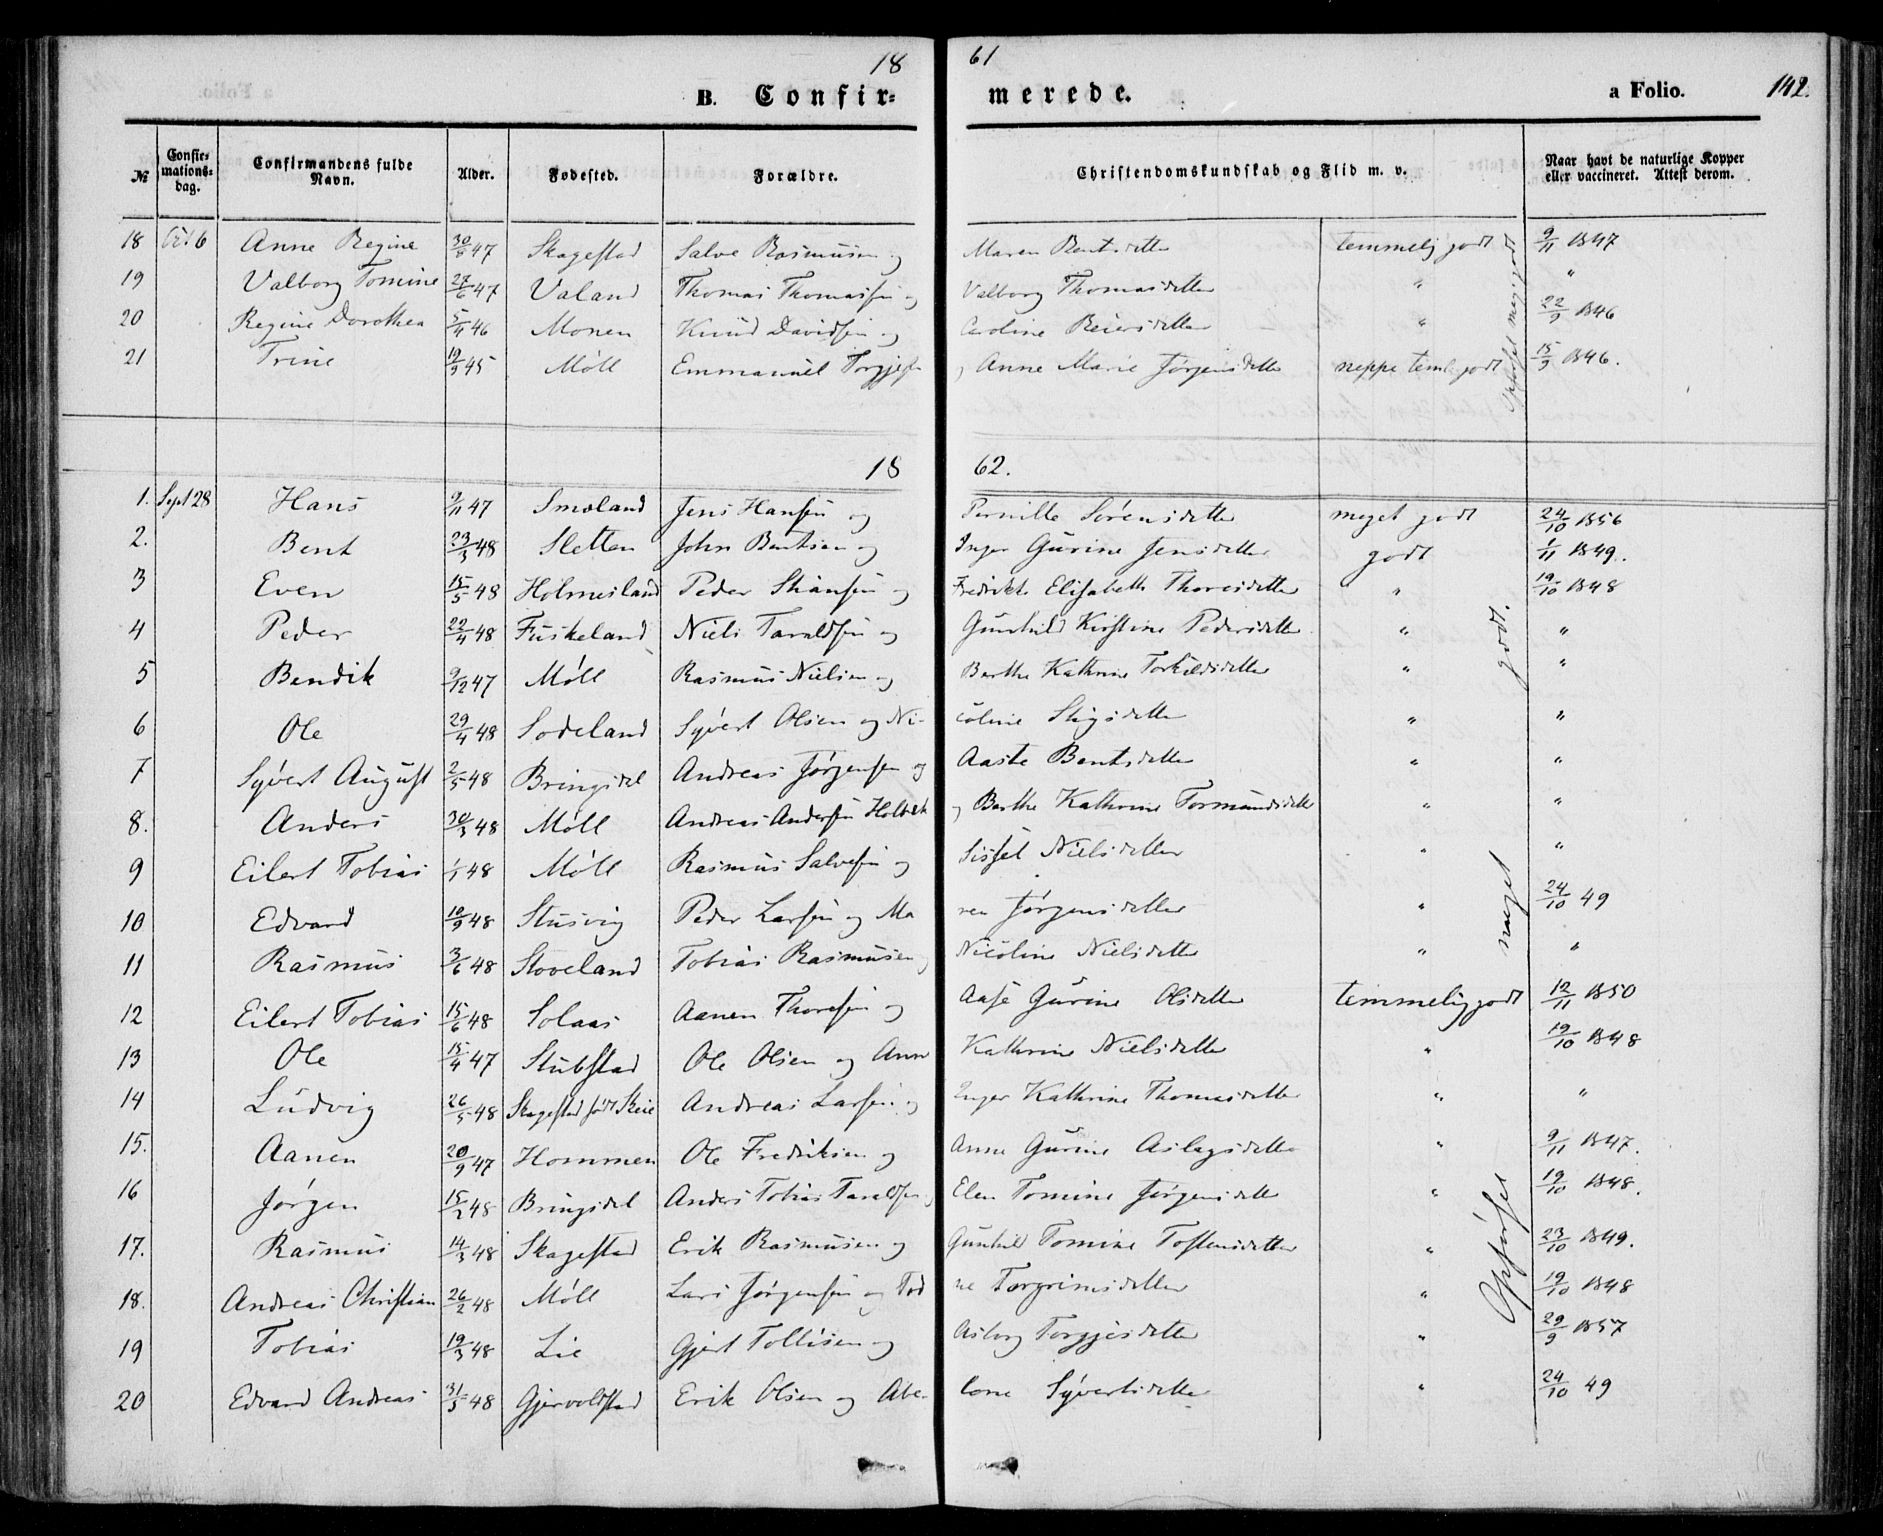 18 61
B. Confir= merede. a Folio. 142.
№ Confir=mations=dag. Confirmandens fulde Navn. Alder. Fødested. Forældre. Christendomskundskab og Flid m. v. Naar havt de naturlige Kopper eller vaccineret. Attest derom.
18 Oct 6 Anne Regine 47 Skagestad Salve Rasmusen og Maren Bentsdatter temmelig godt 9/11 1847
19 Valborg Tomine 27/6 47 Valand Thomas Thomassen og Valborg Thomasdatter " "
20 Regine Dorothea 5/11 46 Monen Knud Davidsen og Caroline Reiersdatter " 22/9 1846
21 Trine 19/9 45 Möll Emmanuel Torgjes og Anne Marie Jørgensdatter neppe teml. godt 15/9 1846.
Opførsel meg. godt
18 62.
1. Sept 28 Hans 9/11 47 Smaland Jens Hansen og Pernille Sørensdatter meget godt 24/10 1856
2. Bent 23/3 48 Sletten John Bentsen og Inger Gurine Jensdatter godt 1/11 1849.
3 Even 15/5 48 Holmesland Peder Stiansen og Fredrikke Elisabeth Thoresdatter " 19/10 1848
4 Peder 22/4 48 Fuskeland Niels Taraldsen og Gunhild Kirstine Pedersdatter " "
5 Bendik 9/12 47 Möll Rasmus Nielsen og Berthe Kathrine Torkildsdatter " "
6 Ole 29/4 48 Sodeland Syvert Olsen og Ni- coline Stigsdatter " "
7 Syvert August 2/5 48 Bringsdal Andreas Jørgensen og Aaste Bentsdatter " "
8. Anders 30/3 48 Möll Andreas Andersen Holbek og Berthe Kathrine Tormundsdatter " "
9 Eilert Tobias 1/1 48 Möll Rasmus Salvesen og Sissel Nielsdatter " "
10 Edvard 10/9 48 Stusvig Peder Larsen og Ma ren Jørgensdatter " 24/10 49
11 Rasmus 3/6 48 Stoveland Tobias Rasmusen og Nicoline Nielsdatter " "
12 Eilert Tobias 15/6 48 Solaas Aanen Thoresen og Aase Gurine Olsdatter temmelig godt 12/11 1850
13 Ole 15/4 47 Stubstad Ole Olsen og Ann Kathrine Nielsdatter " 19/10 1848
14 Ludvig 26/5 48 Skagestad født Skeie Andreas Larsen og Inger Kathrine Thomasdatter " "
15. Aanen 20/9 47 Hommen Ole Fredriksen og Anne Gurine Aslagsdatter " 9/11 1847.
16 Jørgen 15/2 48 Bringsdal Anders Tobias Taraldsen og Elen Tomine Jørgensdatter " 19/10 1848.
17. Rasmus 14/3 48 Skagestad Erik Rasmusen og Gunhild Tomine Tostensdatter " 23/10 1849.
18. Andreas Christian 26/2 48 Möll Lars Jørgensen og Tod ne Torgrimsdatter " 19/10 1848
19 Tobias 19/3 48 Lie Gjert Tollisen og Asborg Torgjesdatter " 29/9 1857
20 Edvard Andreas 31/5 48 Gjervoldstad Erik Olsen og Abe- lone Syvertsdatter " 24/10 49
Opførsel meget godt.